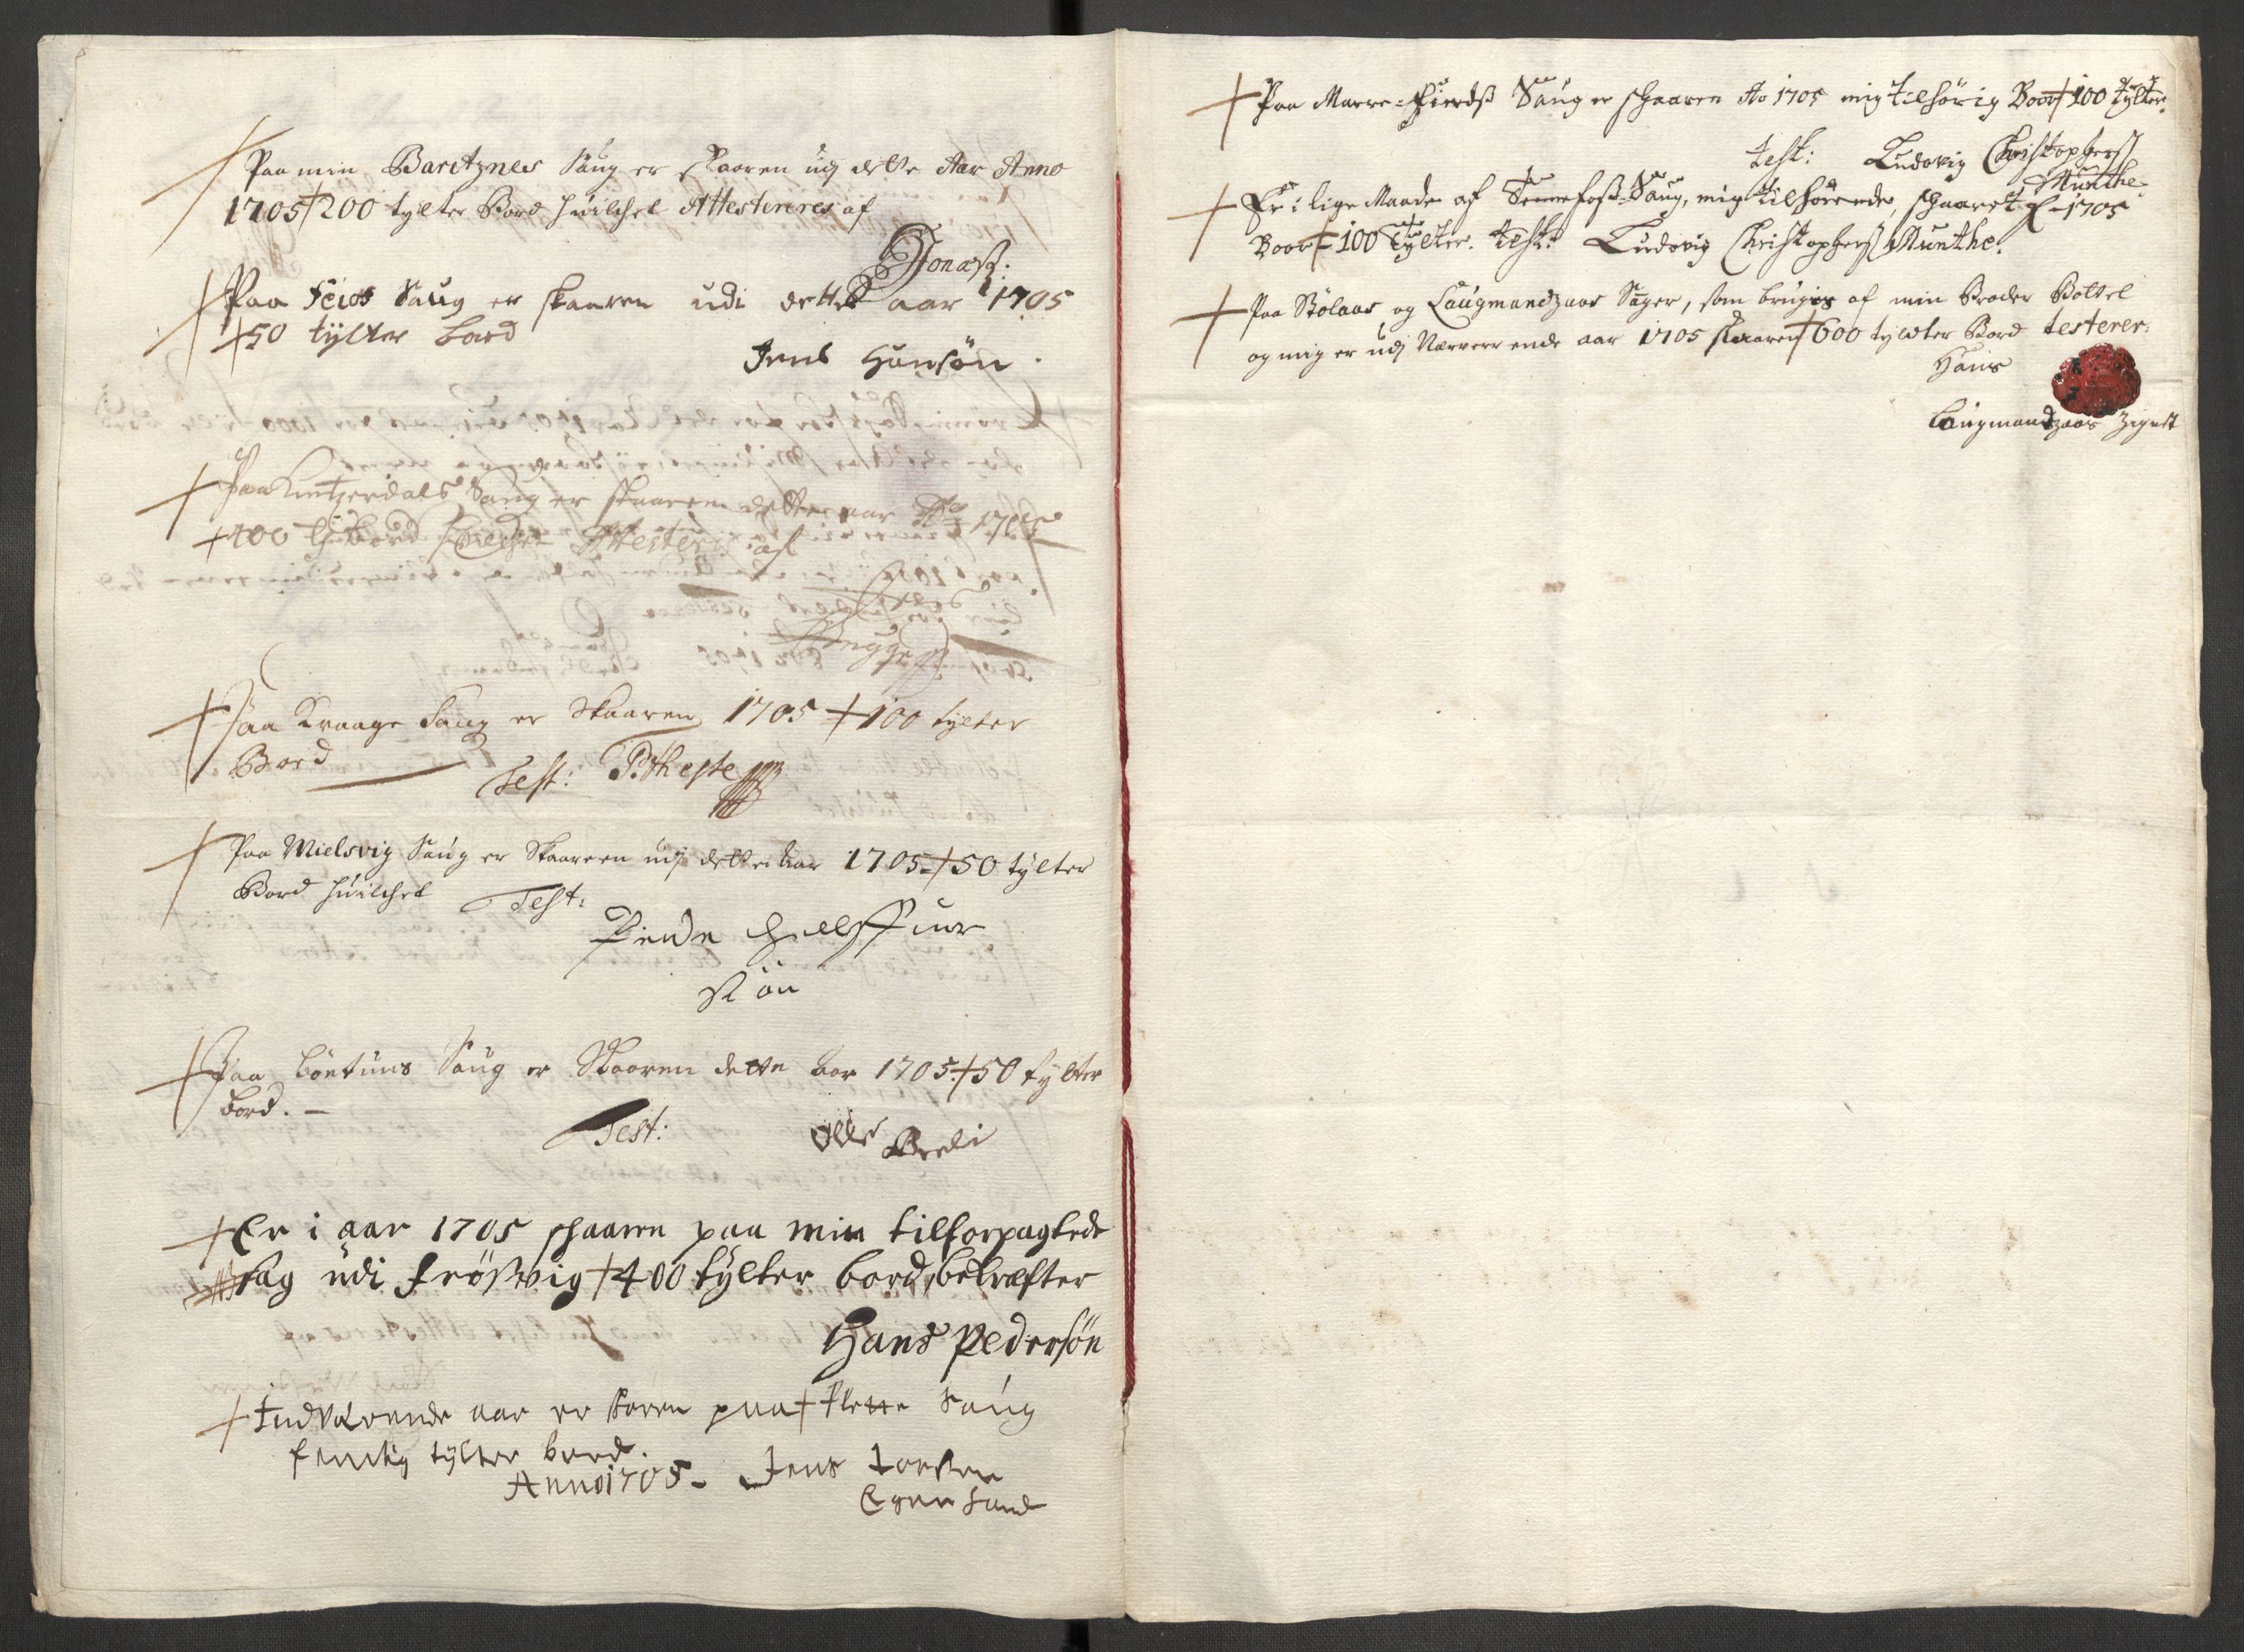 Paa min Baritznes Saug er skaaren udj dette Aar Anno
1705 200 tylter Bord huilchet Attesterer af
Jonasß:
Paa Feios Saug er skaaren udi dette aar 1705
50 tylter bord
Jens Hansön.
Paa Kintzerdals Saug er skaaren dette aar Ao 1705
400 tylt bord Attesteris af
Paa Kraage Saug er Skaaren 1705 100 tylter
Bord
Test:
Paa Mielsvig Saug er Skaareen udj dette aar 1705 50 tylter
Bord huilchet Test:
Peder
sön
Paa böetuns Saug er Skaaren dette aar 1705. 50 tylter
bord. —
Test: Olle
Er i aar 1705 schaaren paa min tilforpagtede
Sag udi Frösvig 400 tylter bord, bekræfter
Hans Pedersön
Indværende aar er skoren paa Flette Saug
femtig tylter bord.
Anno 1705 - Jens
Paa Marre-Fierdß Saug er schaaren Ao 1705 mig tilhörig Boor 100 Tylter.
Test: Ludovig Christophersß
Munthe.
Er i lige Maade af Tennefoss-Saug, mig tilhörende, schaaret 1705
Boor 100 Tylter. Test: Ludovig Christophersß Munthe.
Paa Stölaas og Laugmandzaas Sager, som brugis af min Broder Bottel
og mig er udj Nerverrende aar 1705 skaaren 600 tylter Bord testerer.
Hans
Laugmandzaas Zignet